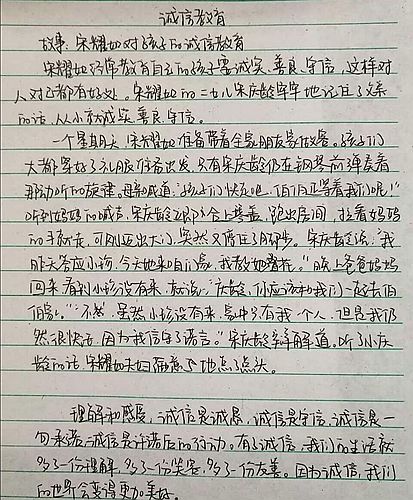 诚信教育
故事：宋耀如对孩子的诚信教育
宋耀如经常教育自己的孩子要诚实、善良、守信，这样对
人对己都有好处。宋耀如的二女儿宋庆龄牢牢地记住了父亲
的话，从小就诚实、善良、守信。
一个星期天，宋耀如准备带着全家去朋友家做客。孩子们
大都穿好了礼服准备出发，只有宋庆龄仍在钢琴前弹奏着
那动听的旋律。母亲喊道：“孩子们快走吧，伯伯正等着我们呢！”
听到妈妈的喊声，宋庆龄立即合上琴盖，跑出房间，拉着妈妈
的手就走，可刚迈出大门，突然又停住了脚步。宋庆龄说：“我
昨天答应小珍，今天她来咱们家，我教她叠花。”晚上爸爸妈妈
回来，看到小珍没有来，就说：“庆龄，你应该和我们一起去伯
伯家。”“不，虽然小珍没有来，家中只有我一个人，但是我仍
然很快活，因为我信守了诺言。”宋庆龄辩解道。听了小庆
龄的话，宋耀如夫妇满意地点了点头。
理解和感恩，诚信是诚恳，诚信是守信，诚信是一
句承诺，诚信是许诺后的行动。有了诚信，我们的生活就
多了一份理解，多了一份笑容，多了一份友善。因为诚信，我们
的世界会变得更加美好。